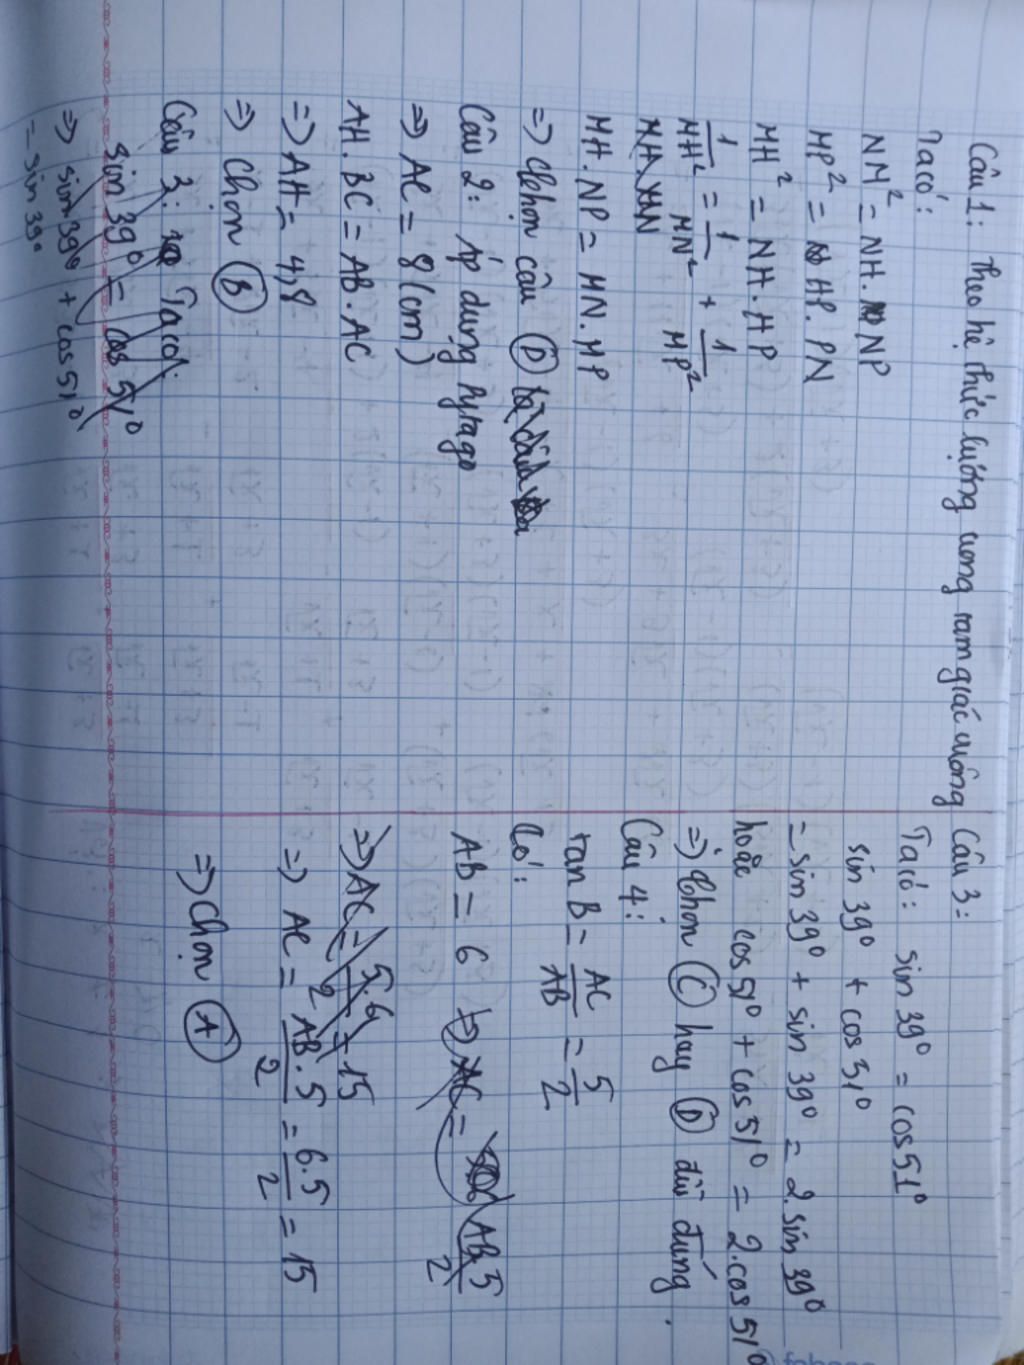 Câu 1: Theo hệ thức lượng trong tam giác vuông
Ta có:
NM² = NH. NP
MP² = HP. PN
MH² = NH. HP
1/MH² = 1/MN² + 1/MP²
MH. NP = MN. MP
=> Chọn câu D
Câu 2: Áp dụng Pytago
=> AC = 8 (cm)
AH. BC = AB. AC
=> AH = 4,8
=> Chọn B
Câu 3: Ta có:
sin 39° = cos 51°
=> sin 39° + cos 51°
= sin 39°
Câu 3:
Ta có: sin 39° = cos 51°
sin 39° + cos 51°
= sin 39° + sin 39° = 2. sin 39°
hoặc cos 51° + cos 51° = 2. cos 51°
=> Chọn C hay D đều đúng.
Câu 4:
tan B = AC/AB = 5/2
Có:
AB = 6 => AC = AB.5/2
=> AC = 5.6/2 = 15
=> AC = AB.5/2 = 6.5/2 = 15
=> Chọn A